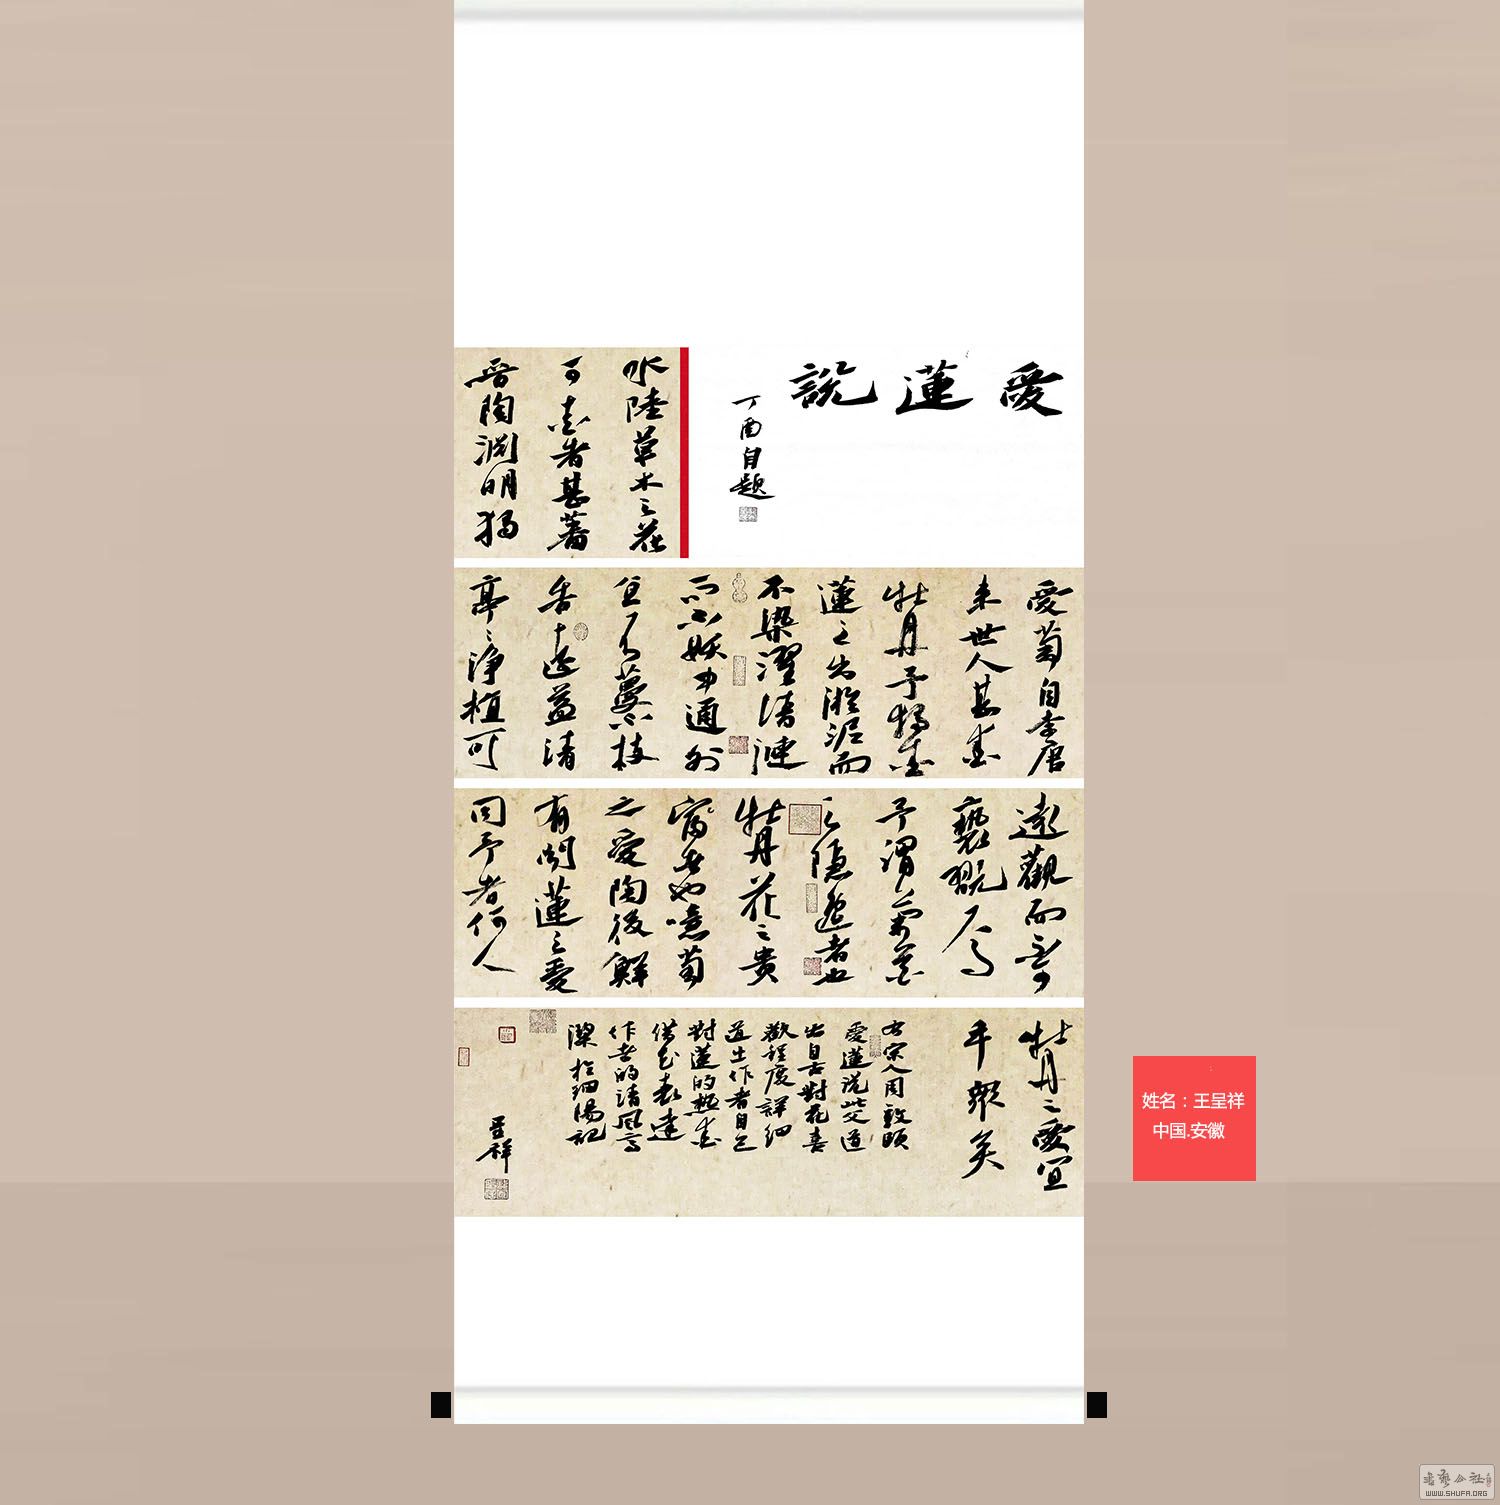 愛蓮說
丁酉自題
水陸草木之花
可愛者甚蕃
晉陶淵明獨
愛菊自李唐
来世人甚愛
牡丹予獨愛
蓮之出淤泥而
不染濯清漣
而不妖中通外
直不蔓不枝
香遠益清
亭亭淨植可
遠觀而不可
褻翫焉
予謂菊花
之隱逸者也
牡丹花之貴
富者也噫菊
之愛陶後鮮
有聞蓮之愛
同予者何人
牡丹之愛宜
乎眾矣
右宋人周敦頤
愛蓮說此文道
出自己對花喜
歡程度詳細
道出作者自己
對蓮的極愛
借花表達
作者的清風高
潔
呈祥
姓名：王呈祥
中国.安徽
WWW.SHUFA.ORG